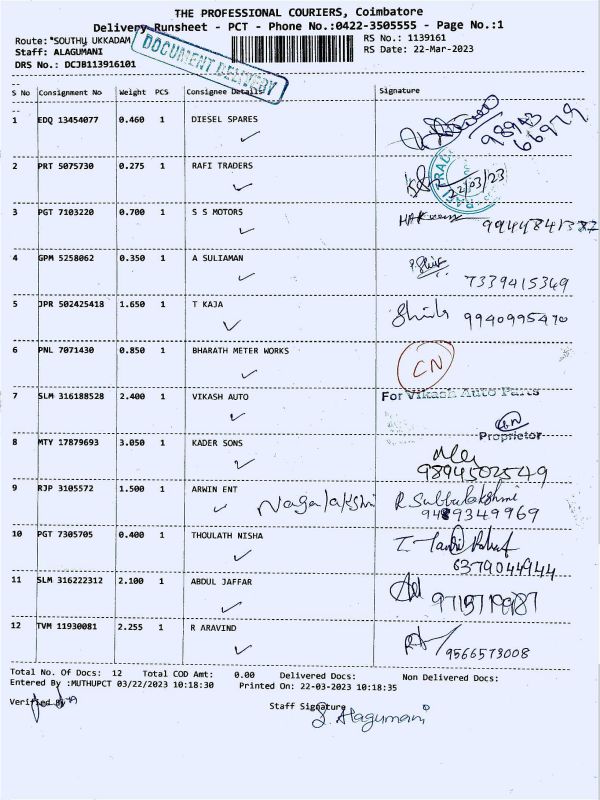 THE PROFESSIONAL COURIERS, Coimbatore
Delivery Runsheet - PCT - Phone No.:0422-3505555 - Page No.:1
Route: *SOUTH, UKKADAM
RS No.: 1139161
Staff: ALAGUMANI
RS Date: 22-Mar-2023
DRS No.: DCJB113916101
DOCUMENT DELIVERY
S No Consignment No Weight PCS Consignee Details Signature
1 EDQ 13454077 0.460 1 DIESEL SPARES
98943
66929
2 PRT 5075730 0.275 1 RAFI TRADERS
22/03/23
3 PGT 7103220 0.700 1 S S MOTORS
9944841382
4 GPM 5258062 0.350 1 A SULIAMAN
7339415349
5 JPR 502425418 1.650 1 T KAJA
9940995470
6 PNL 7071430 0.850 1 BHARATH METER WORKS
CN
7 SLM 316188528 2.400 1 VIKASH AUTO
For Vikash Auto Parts
Proprietor
8 MTY 17879693 3.050 1 KADER SONS
9894502549
9 RJP 3105572 1.500 1 ARWIN ENT Nagalakshmi R Subbulakshmi
9489349969
10 PGT 7305705 0.400 1 THOULATH NISHA
6379044944
11 SLM 316222312 2.100 1 ABDUL JAFFAR
9715719987
12 TVM 11930081 2.255 1 R ARAVIND
9566573008
Total No. Of Docs: 12 Total COD Amt: 0.00 Delivered Docs: Non Delivered Docs:
Entered By :MUTHUPCT 03/22/2023 10:18:30 Printed On: 22-03-2023 10:18:35
Verified By
Staff Signature
S. Alagumani